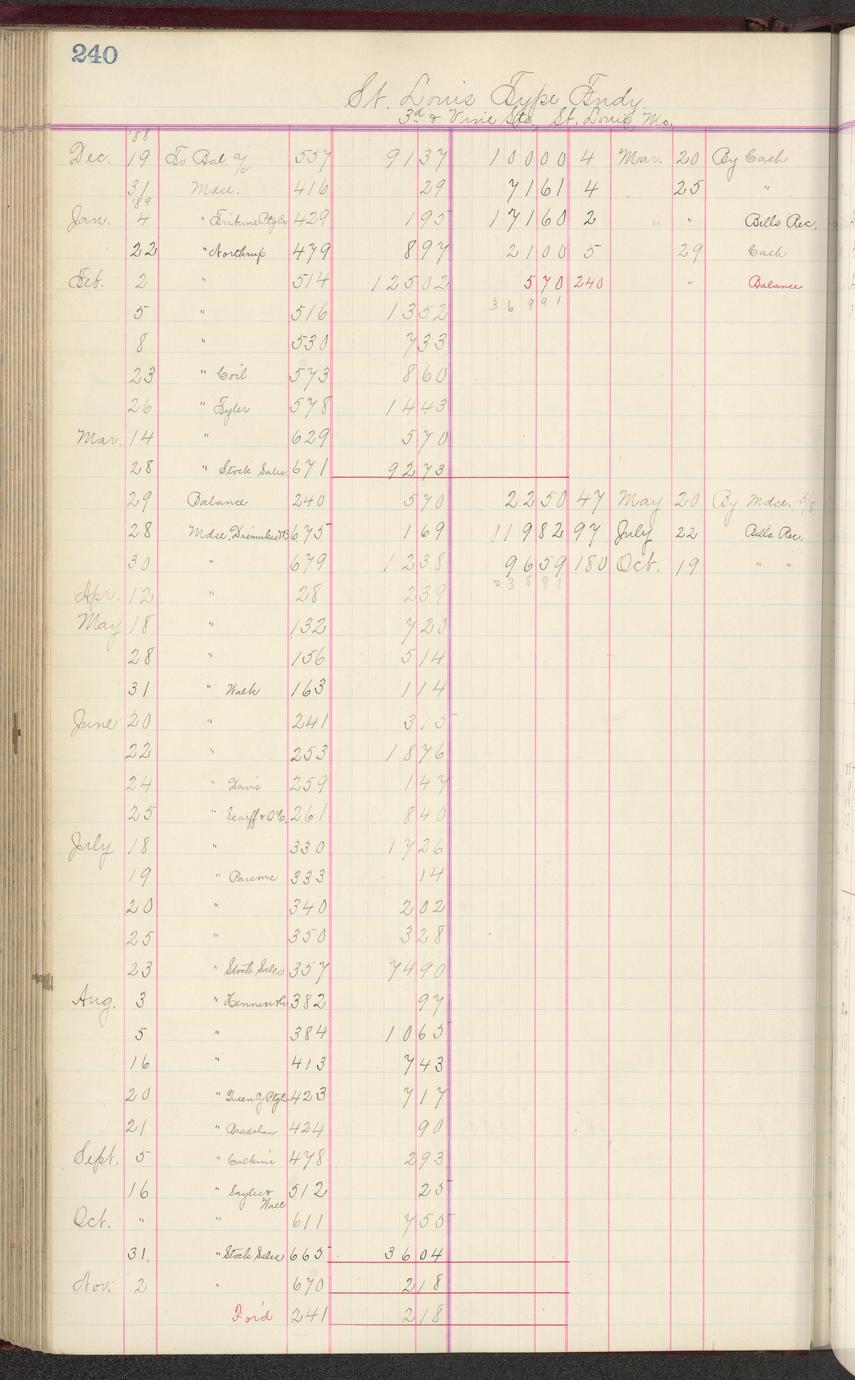 240
St. Louis Type Fndy.
3d & Vine Sts, St. Louis, Mo.
'88
Dec. 19 To Bal. a/c 557 9137 10000 4 Mar. 20 By Cash
31 Mdse. 416 29 7161 4 25 "
'89
Jan. 4 " Tribune Ptg Co 429 195 17160 2 " " Bills Rec.
22 " Northrup 479 897 2100 5 29 Cash
Feb. 2 " 514 12502 570 240 " Balance
36991
5 " 516 1352
8 " 530 733
23 " Coil 573 860
26 " Tyler 578 1443
Mar. 14 " 629 570
28 " Stock Sales 671 9273
29 Balance 240 570 2250 47 May 20 By Mdse. 5/8
28 Mdse. 675 169 11982 97 July 22 Bills Rec.
30 " 679 1238 9659 180 Oct. 19 " "
23891
Apr. 12 " 28 239
May 18 " 132 720
28 " 156 514
31 " Walk 163 114
June 20 " 241 315
22 " 253 1876
24 " Davis 259 147
25 " Scarff & O'C. 261 840
July 18 " 330 1726
19 " Parsons 333 14
20 " 340 202
25 " 350 328
23 " Stock Sales 357 7490
Aug. 3 " 382 97
5 " 384 1065
16 " 413 743
20 " Queen Cy Ptg 423 717
21 " Bradshaw 424 90
Sept. 5 " Calkins 478 293
16 " Sayles & 512 25
Wall
Oct. " " 611 755
31. " Stock Sales 665 3604
Nov. 2 " 670 218
For'd 241 218